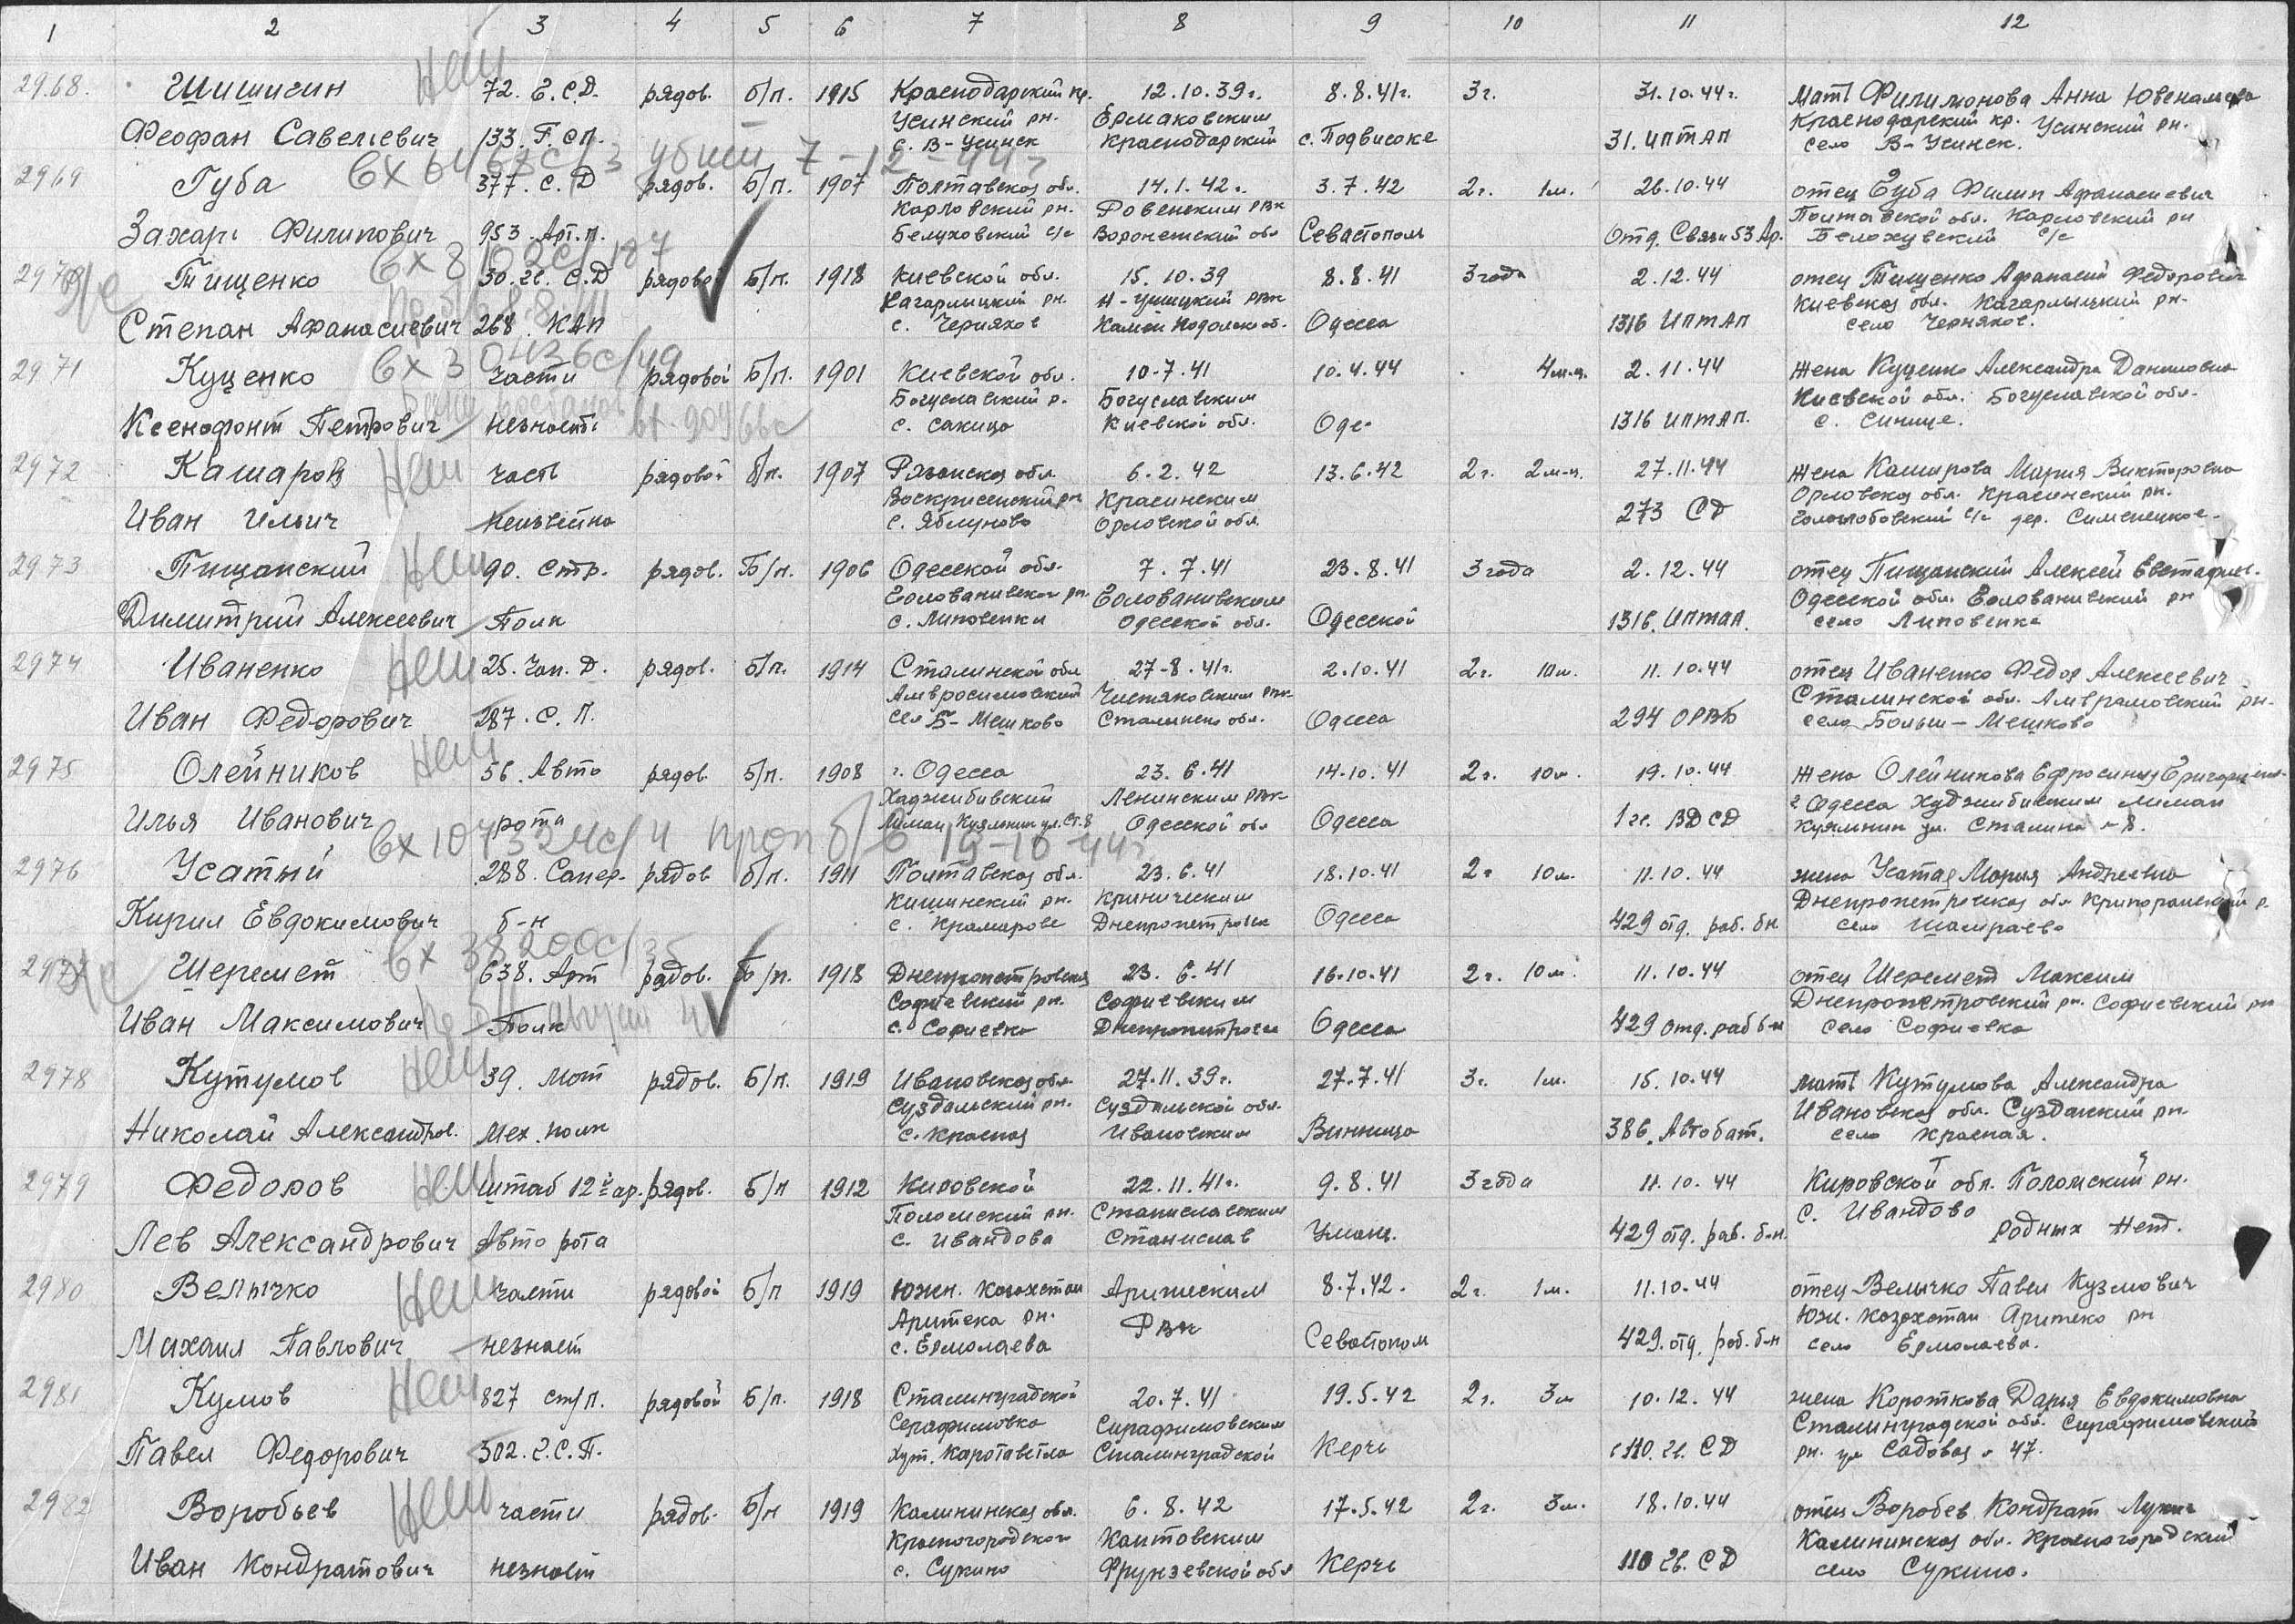 1 2 3 4 5 6 7 8 9 10 11 12
2968. Шишигин Нет 72. Г.С.Д. рядов. б/п. 1915 Краснодарский кр. 12.10.39г. 8.8.41г. 3г. 31.10.44г. мать Филимонова Анна
Усинский рн. Ермаковским Краснодарский кр. Усинский рн.
Феофан Савелиевич 133. Г.СП. с. В-Усинск Краснодарский с. Подвисоке 31. ИПТАП село В-Усинск.
убит 7-12-44г
2969 Губа 377. С.Д рядов. Б/п. 1907 Полтавская обл. 14.1.42г. 3.7.42 2г. 1м. 26.10.44 отец Губа Филип Афанасиевич
Карловский рн. Ровенским РВк Полтавской обл. Карловский рн
Захарі Филипович 953. Арт.п. Белуховский с/с Воронежский обл Севастополь Отд. Связи 53 Ар. Белохувский с/с
вх 8102с/187
2970 Тищенко 30. гв. С.Д рядовой Б/п. 1918 Киевской обл. 15.10.39 8.8.41 3 года 2.12.44 отец Тищенко Афанасий Федорович
Кагарлыцкий рн. Н-Ушицкий РВк Киевская обл. Кагарлыцкий рн.
Степан Афанасиевич 268. КАП с. Черняхов Одесса 1316 ИПТАП село Черняхов.
вх 30436с/
2971 Куценко части рядовой Б/п. 1901 Киевской обл. 10.7.41 10.4.44 4м-ц. 2.11.44 жена Куценко Александра Даниловна
Богуславский р. Богуславским Киевской обл. Богуславской обл.
Ксенофонт Петрович незнаеть с. Саница Киевской обл. Одес 1316 ИПТАП. с. Синице.
2972 Кашаров Нет часть рядовой б/п. 1907 Рязанская обл. 6.2.42 13.6.42 2г. 2м-ц. 27.11.44 жена Каширова Мария Викторовна
Воскрисенский рн Красинским Орловская обл. Красинский рн.
Иван Ильич неизвестна с. Яблуново Орловской обл. 273 СД с/с дер.
2973 Пищанский Нет 90. Стр. рядов. Б/п. 1906 Одесской обл. 7.7.41 23.8.41 3 года 2.12.44 отец Пищанский Алексей
Голованивской рн. Голованивским Одесской обл. Голованивский рн
Димитрий Алексеевич Полк с. Липовенки Одесской обл. Одесской 1316. ИПТАП. село Липовенка
2974 Иваненко Нет 25. Чап. Д. рядов. б/п. 1914 Сталинской обл 27-8.41г. 2.10.41 2г. 10м. 11.10.44 отец Иваненко Федор Алексеевич
Амвросимовский Чистяковским РВк Сталинской обл. рн.
Иван Федорович 287. С.П. сел Б-Мешково Сталинско обл. Одесса 294 ОРВБ село Больш-Мешково
2975 Олейников Нет 56. Авто рядов. б/п. 1908 г. Одесса 23.6.41 14.10.41 2г. 10м. 19.10.44 жена Олейникова Ефросиния
Хаджибивский Ленинским РВк г Одесса Худжибивским лиман
Илья Иванович рота Лиман Куяльник ул. Ст. 8 Одесской обл Одесса 1 гв. ВДСД Куялник ул. Сталина 8.
вх 107324с/4 проп б/в 19-10-44г
2976 Усатый 288. Сапер. рядов б/п. 1911 Полтавская обл. 23.6.41 18.10.41 2г 10м. 11.10.44 жена Усатая Мария Андреевна
Кишинский рн. Криническим Днепропетровская обл
Кирил Евдокимович б-н с. Крамарове Днепропетровск Одесса 429 отд. раб. бн. село Шамраево
вх 38200с/35
2977 Шеремет 638. Арт рядов. Б/п. 1918 Днепропетровская 23.6.41 16.10.41 2г. 10м. 11.10.44 отец Шеремет Максим
Софиевский рн. Софиевским Днепропетровский рн. Софиевский рн
Иван Максимович Полк с. Софиевка Днепропетровск Одесса 429 отд. раб б-н село Софиевка
2978 Кутумов Нет 39. Мот рядов. Б/п. 1919 Ивановская обл. 27.11.39г. 27.7.41 3г. 1м. 15.10.44 мать Кутумова Александра
Суздальский рн. Суздальской обл. Ивановская обл. Суздалский рн
Николай Александров. Мех. полк с. Красная Ивановским Винница 386. Автобат. село Красная.
2979 Федоров Нет штаб 12й ар. рядов. Б/п 1912 Кировской 22.11.41г. 9.8.41 3 года 11.10.44 Кировской обл. Поломский рн.
Поломский рн. Станиславским с. Ивандово
Лев Александрович Авто рота с. Ивандова Станислав Умань. 429 отд. раб. б-н. родных нет.
2980 Велычко Нет части рядовой Б/п 1919 Южн. Казахстан Арижским 8.7.42. 2г. 1м. 11.10.44 отец Велычко Павел Кузмович
Аритека рн. РВк Юж. Казахстан Аритеко рн
Михаил Павлович незнает с. Ермолаева Севастополь 429. отд. раб. б-н село Ермолаева.
2981 Кумов Нет 827 ст/п. рядовой Б/п. 1918 Сталинградской 20.7.41 19.5.42 2г. 3м 10.12.44 жена Короткова Дарья Евдокимовна
Серафимовка Сирафимовским Сталинградской обл. Сирафимовский
Павел Федорович 302. г.С.П. хут. Сталинградской Керчь 110. гв. СД рн. ул Садовая 47.
2982 Воробьев Нет части рядов. Б/п 1919 Калининская обл. 6.8.42 17.5.42 2г. 3м. 18.10.44 отец Воробев Кондрат
Красногородского Кантовским Калининская обл. Красногородский
Иван Кондратович незнает с. Сукино Фрунзевской обл Керчь 110 гв. СД село Сукино.